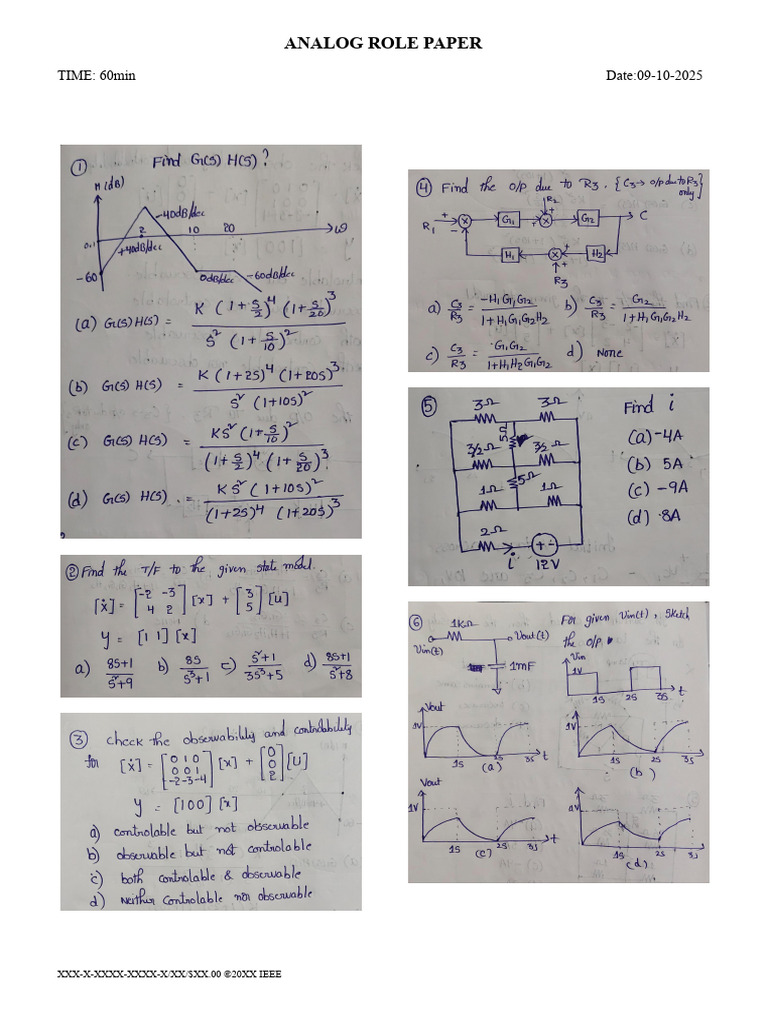 ANALOG ROLE PAPER
TIME: 60min
Date:09-10-2025
① Find G(S) H(S) ?
M(dB)
-40dB/dec
2 10 20 →ω
0.1
+40dB/dec
-60
0dB/dec -60dB/dec
(a) G(S) H(S) = K (1+S/2)⁴ (1+S/20)³ / S² (1+S/10)²
(b) G(S) H(S) = K (1+2S)⁴ (1+20S)³ / S² (1+10S)²
(c) G(S) H(S) = KS² (1+S/10)² / (1+S/2)⁴ (1+S/20)³.
(d) G(S) H(S) = KS² (1+10S)² / (1+2S)⁴ (1+20S)³
② Find the T/F to the given state model.
[ẋ] = [-2 -3
4 2] [x] + [3
5] [U]
y = [1 1] [x]
a) 8S+1 / S²+9 b) 8S / S³+1 c) S²+1 / 3S³+5 d) 8S+1 / S²+8
③ Check the observability and controlability
for [ẋ] = [0 1 0
0 0 1
-2 -3 -4] [x] + [0
0
2] [U]
y = [1 0 0] [x]
a) controlable but not observable
b) observable but not controlable
c) both controlable & observable
d) Neither Controlable nor observable
④ Find the o/p due to R3. {C3→ o/p due to R3 only}
R2
R1 + - G1 + + G2 C
H1 + + H2
R3
a) C3/R3 = -H1G1G2 / 1+H1G1G2H2 b) C3/R3 = G2 / 1+H1G1G2H2
c) C3/R3 = G1G2 / 1+H1H2G1G2 d) None
⑤ 3Ω 3Ω Find i
5Ω
3/2Ω 3/2Ω
5Ω
1Ω 1Ω
2Ω
i 12V
(a) -4A
(b) 5A
(c) -9A
(d) 8A
⑥ 1KΩ For given Vin(t), Sketch
Vin(t) Vout(t) the o/p
1mF
Vin
1V
1S 2S 3S t
Vout
1V
1S 2S 3S t
(a)
1V
1S 2S 3S
(b)
Vout
1V
1S 2S 3S t
(c)
1V
1S 2S 3S
(d)
XXX-X-XXXX-XXXX-X/XX/$XX.00 ©20XX IEEE